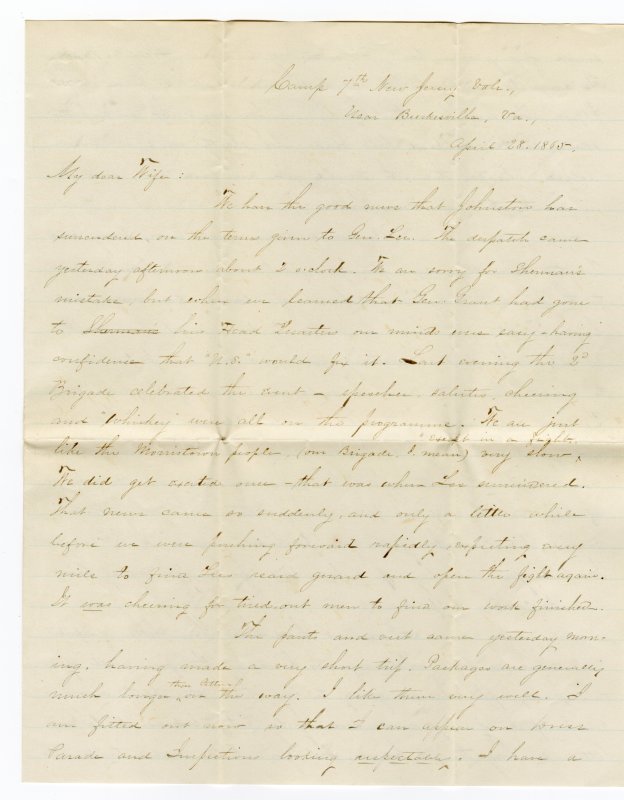 Camp 7th New Jersey Vols.,
Near Burkesville, Va.,
April 28. 1865.
My dear Wife:
We have the good news that Johnston has
surrendered, on the terms given to Gen. Lee. The despatch came
yesterday afternoon about 2 o'clock. We are sorry for Sherman's
mistake, but when we learned that Gen. Grant had gone
to Sherman's his Head Quarters our minds were easy - having
confidence that "U.S." would fix it. Last evening the 2d
Brigade celebrated the event - speeches, salutes, cheering
and "whiskey" were all on the programme. We are just
like the Morristown people, (our Brigade, I mean) very slow, except in a fight.
We did get excited once - that was when Lee surrendered.
That news came so suddenly, and only a little while
before we were pushing forward rapidly, expecting every
mile to find Lee's reard guard and open the fight again.
It was cheering for tired out men to find our work finished.
The pants and vest came yesterday morn-
ing, having made a very short trip. Packages are generally
much longer than letters on the way. I like them very well. I
am fitted out now so that I can appear on Dress
Parade and Inspections looking respectable. I have a